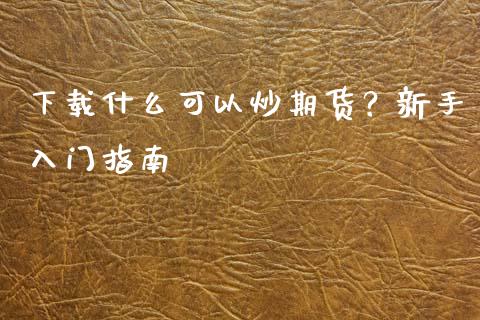 下载什么可以炒期货？新手
入门指南